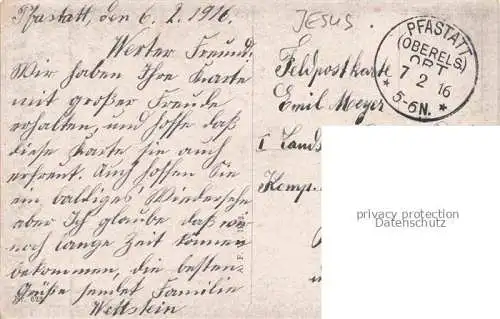 Pfastatt, den 6. 2. 1916.
Werter Freund!
Wir haben Ihre Karte
mit großer Freude
erhalten, und hoffe daß
diese Karte sie auch
erfreut. Auch hoffen Sie
ein baldiges Wiedersehe
aber Ich glaube daß wir
noch lange Zeit kommen
bekommen, die besten
Grüße sendet Familie
Wettstein
JESUS.
PFASTATT
(OBERELS.)
OPT
7 2 16
* 5-6N. *
Feldpostkarte
Emil Meyer
I Lands
Komp.
privacy protection
Datenschutz